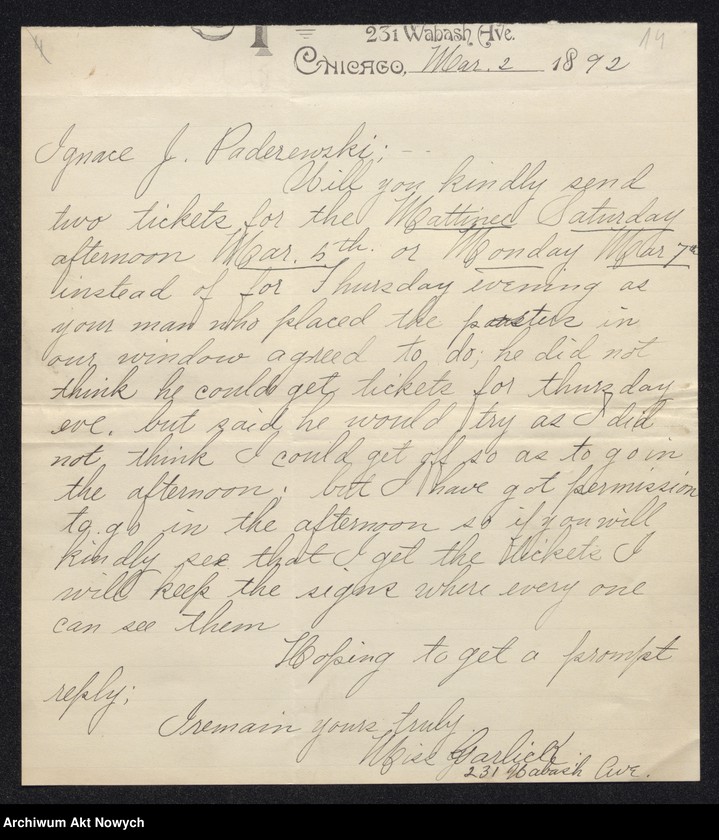 231 Wabash Ave.
14
Chicago, Mar. 2 1892
Ignace J. Paderewski; --
Will you kindly send
two tickets for the Mattinee Saturday
afternoon Mar. 5th. or Monday Mar 7th
instead of for Thursday evening as
your man who placed the posters in
our window agreed to do; he did not
think he could get tickets for thursday
eve. but said he would try as I did
not think I could get off so as to go in
the afternoon; but I have got permission
to go in the afternoon so if you will
kindly see that I get the tickets I
will keep the signs where every one
can see them
Hoping to get a prompt
reply;
I remain yours truly
Miss Garlick.
231 Wabash Ave.
Archiwum Akt Nowych